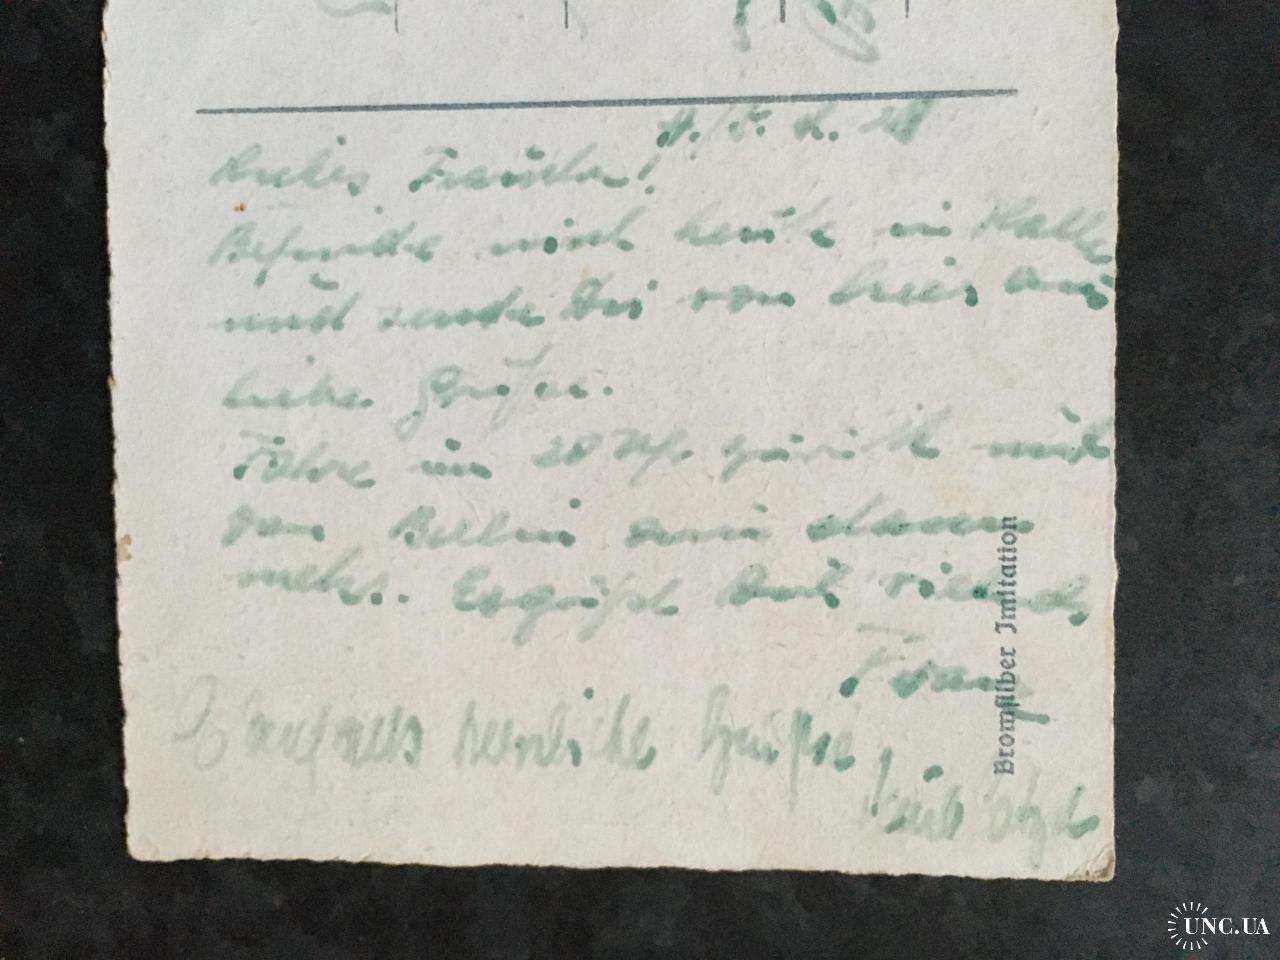 Liebes Fräulein!
Befinde mich heute in Halle
und sende Dir von hier aus
liebe Grüße.
Fahre um 20 Uhr zurück und
von Berlin dann
mehr. Es grüßt Dich vielmals
Franz
Ebenfalls herzliche Grüße
Bromsilber Imitation
UNC.UA